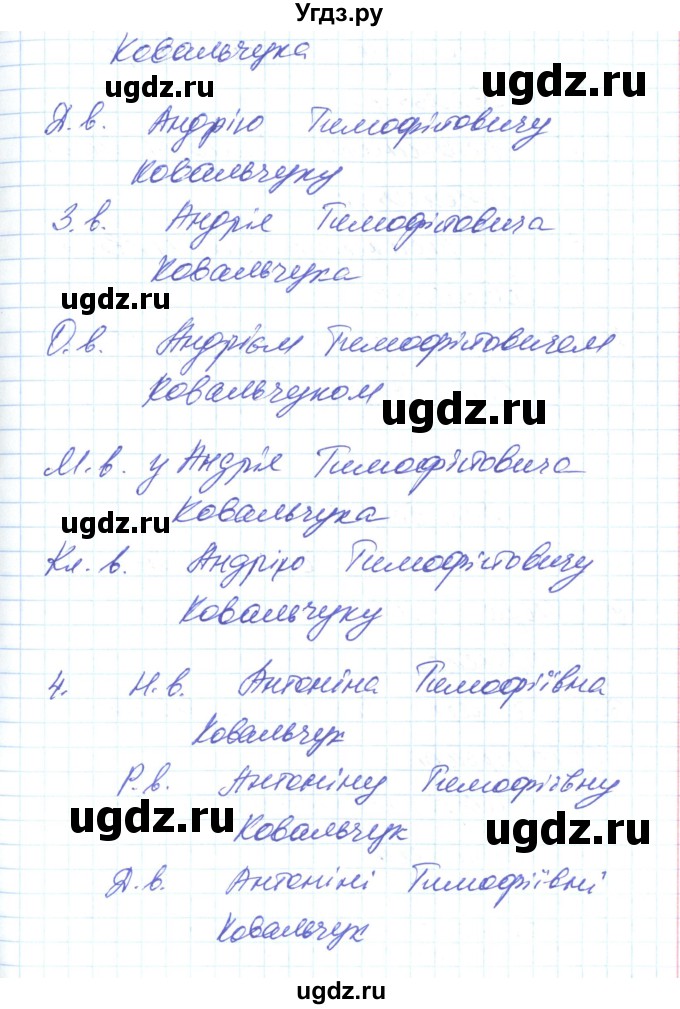 Угдз.ру
Ковальчука
ugdz.ru
ugdz.ru
Д.в. Андрію Тимофійовичу
ugdz.ru
Ковальчуку
З.в. Андрія Тимофійовича
Ковальчука
ugdz.ru
О.в. Андрієм Тимофійовичем
Ковальчуком
ugdz.ru
М.в. у Андрія Тимофійовича
Ковальчука
ugdz.ru
Кл.в. Андрію Тимофійовичу
Ковальчуку
4. Н.в. Антоніна Тимофіївна
Ковальчук
Р.в. Антоніну Тимофіївну
ugdz.ru
Ковальчук
ugdz.ru
Д.в. Антоніні Тимофіївні
Ковальчук
ugdz.ru